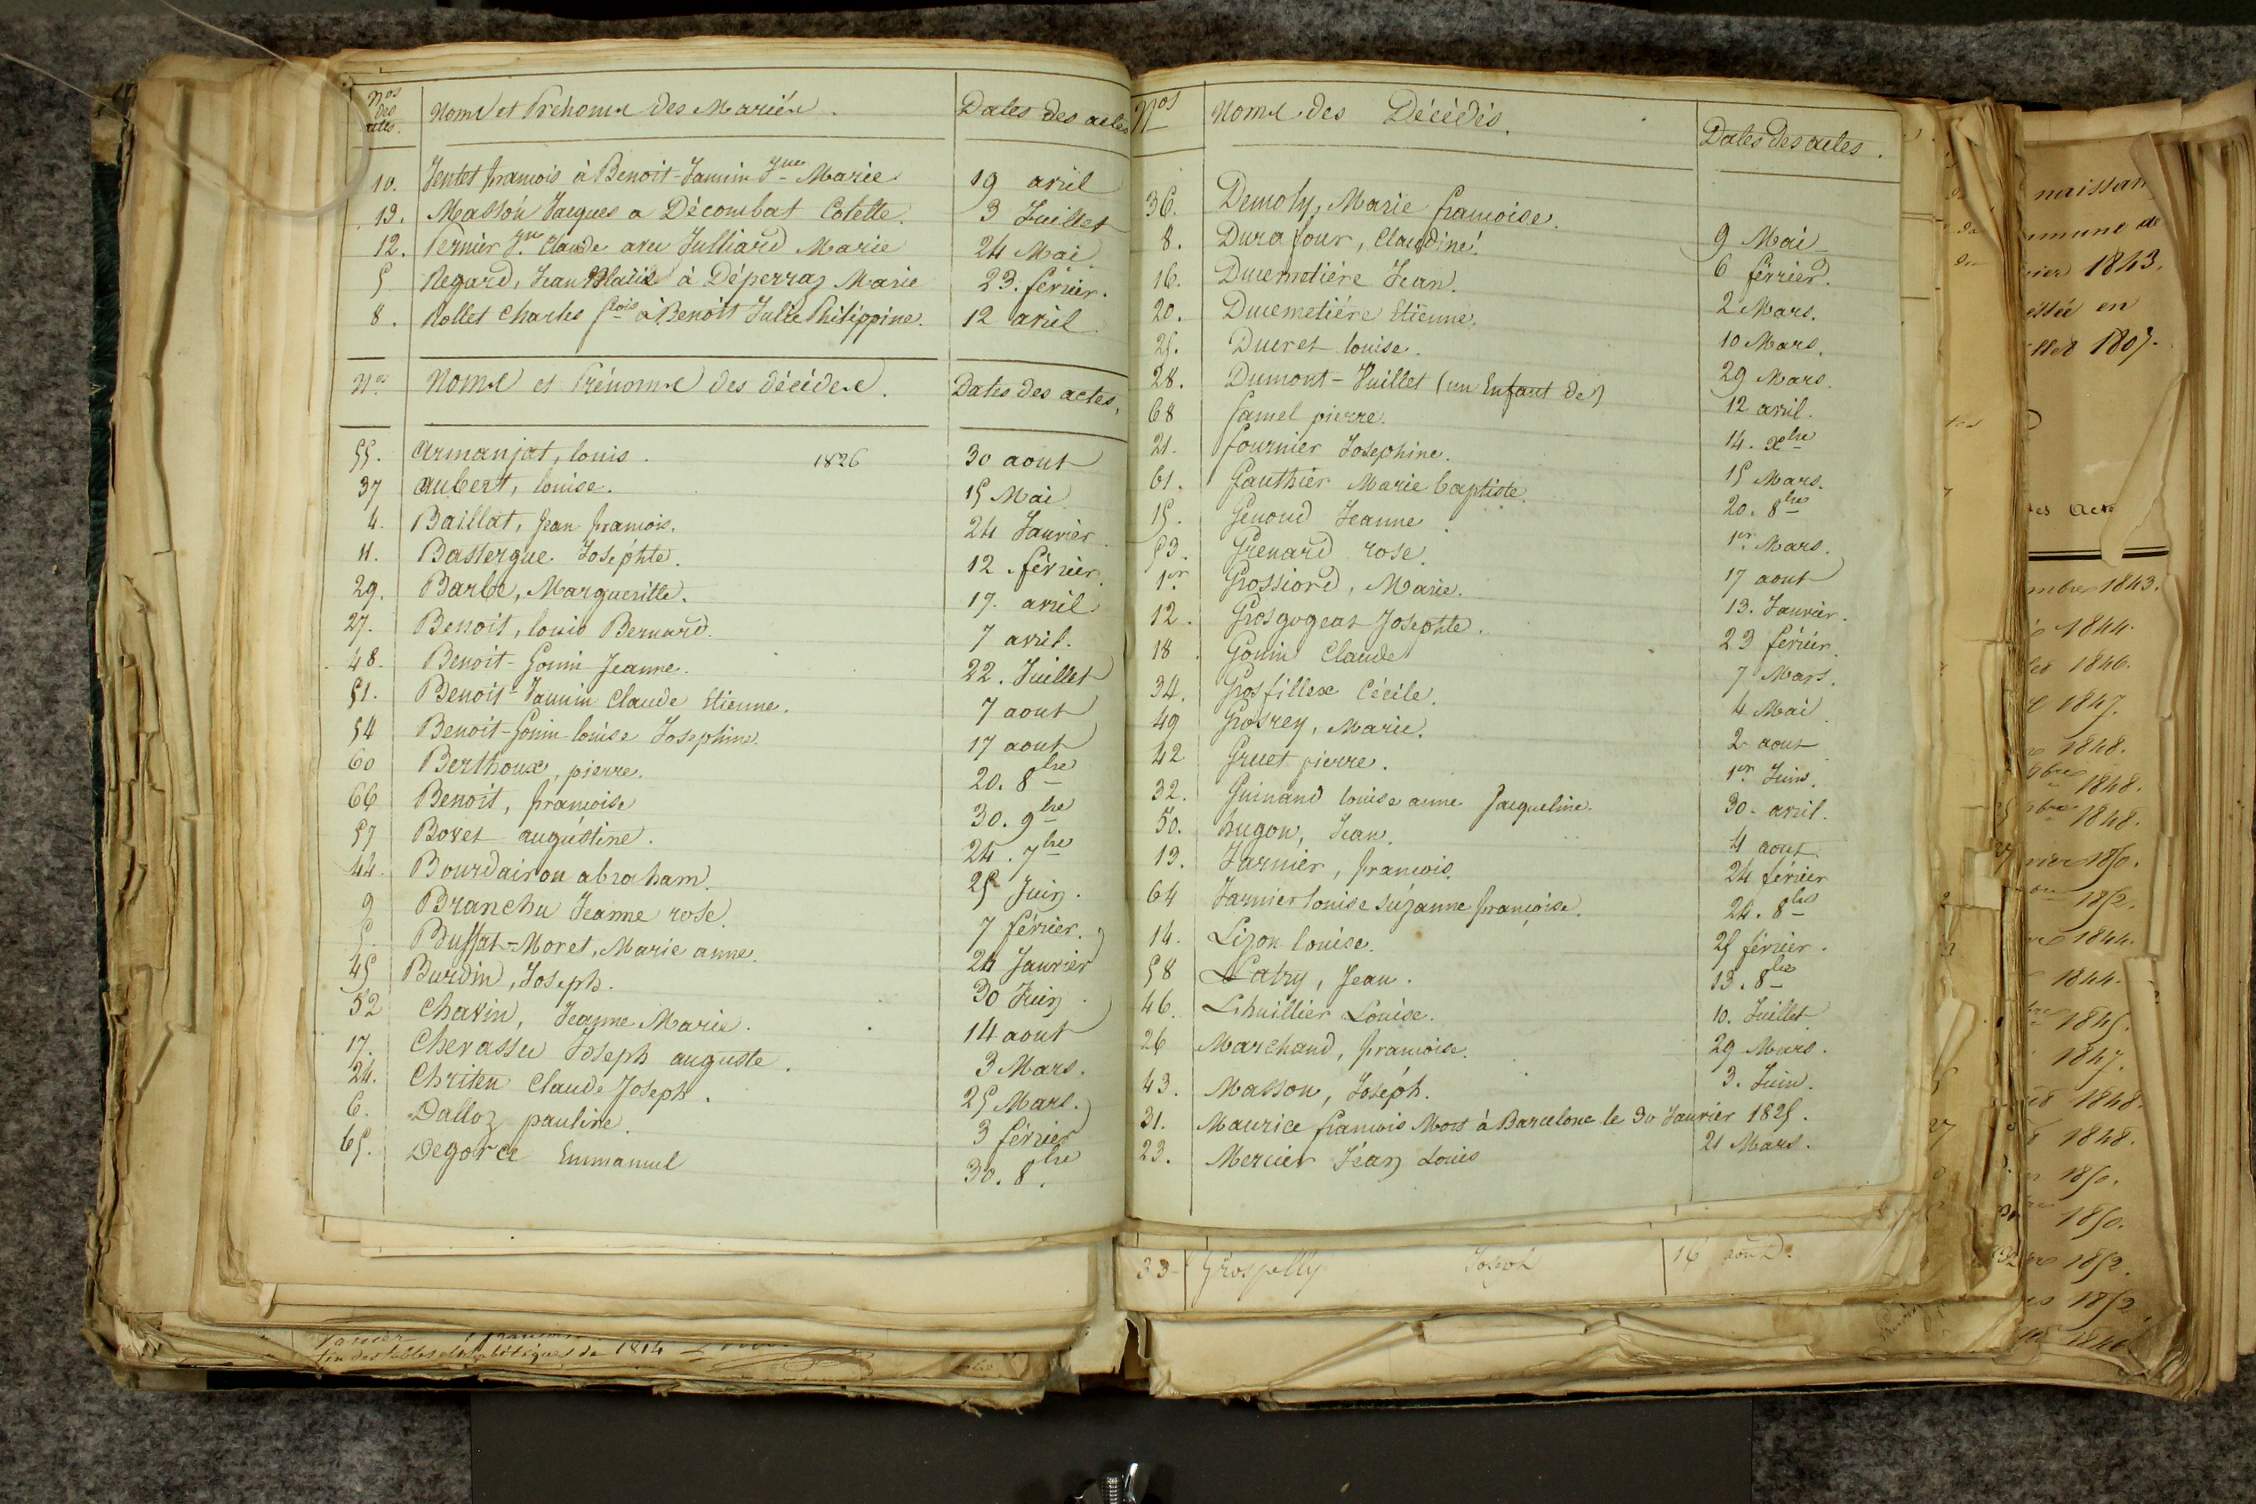 Nos des actes. Noms et Prénoms des Mariés. Dates des actes
10. Jentet françois à Benoit-Jannin Jne Marie 19 avril
13. Masson Jacques a Décombat Colette. 3 Juillet
12. Pernier Jn Claude avec Julliard Marie 24 Mai
5 Regard, Jean Marie à Déperraz Marie 23. février.
8. Rollet Charles fçois à Benoit Julie Philippine. 12 avril
Nos Noms et Prénoms des décédés. Dates des actes,
55. Armanjat, louis. 1826 30 aout
37 aubert, louise. 15 Mai
4. Baillat, Jean françois. 24 Janvier
11. Bastergue Joséphte. 12. février.
29. Barbe, Marguerille. 17. avril
27. Benoit, louis Bernard. 7 avril.
48. Benoit-Gonin Jeanne. 22. Juillet
51. Benoit-Jannin Claude Etienne. 7 aout
54 Benoit-Gonin louise Josephine. 17 aout
60 Berthoux, pierre. 20. 8bre
66 Benoit, françoise 30. 9bre
57 Bovet augustine. 24. 7bre
44. Bourdairon abraham. 25 Juin.
9 Branchu Jeanne rose. 7 février.
5. Buffat-Moret, Marie anne. 24 Janvier
45 Burdin, Joseph. 30 Juin.
52 Chavin, Jeanne Marie. 14 aout
17. Chevassu Joseph auguste. 3 Mars.
24. Chriten Claude Joseph. 25 Mars.
6. Dalloz pauline. 3 février
65. Degorce Emmanuel 30. 8bre.
Nos Noms des Décédés. Dates des actes.
36. Demoly, Marie françoise. 9 Mai
8. Durafour, Claudine. 6 février.
16. Ducemetiére Jean. 2 Mars.
20. Ducemetiére Etienne. 10 Mars.
25. Ducret louise. 29 Mars.
28. Dumont-Vuillet (un Enfant de) 12 avril.
68 famel pierre. 14. xbre
21. fournier Josephine. 15 Mars.
61. Gauthier Marie baptiste. 20. 8bre
15. Genoud Jeanne. 1er Mars.
53. Grenard rose. 17 aout
1er Grossiord, Marie. 13. Janvier.
12. Grosgogeat Josephte. 23 février.
18. Gonin Claude 7 Mars.
34. Grosfillex Cécile. 4 Mai
49 Grosrey, Marie. 2 aout
42 Gruet pierre. 1er Juin.
32. Guinand louise anne Jacqueline. 30. avril.
50. hugon, Jean. 4 aout
13. Jarnier, françois. 24 février
64 Jarnier louise Suzanne françoise. 24. 8bre
14. Lizon louise. 25 février.
58 Labry, Jean. 13. 8bre
46. Lhuillier Louise. 10. Juillet
26 Marchand, françoise. 29 Mars.
43. Masson, Joséph. 3. Juin.
31. Maurice françois Mort à Barcelone le 30 Janvier 1825.
23. Mercier Jean Louis 21 Mars.
33 Grospelly Joseph 16
naissan
1843.
1807.
1843.
1844.
1846.
1847.
1848.
1848.
1848.
1850.
1852.
1844.
1844.
1845.
1847.
1848.
1848.
1850.
1850.
1852.
1852
1846
fin des tables alphabétiques de 1814